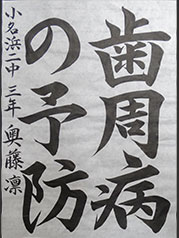 歯周病
の予防
小名浜二中 三年 奥藤凛